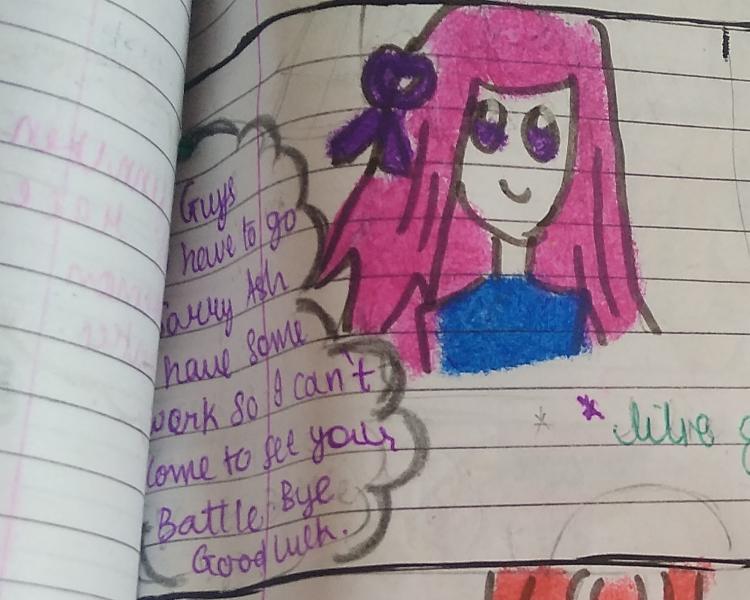 Guys
have to go
Sorry Ash
have some
work so I can't
come to see your
Battle Bye
Good luck.